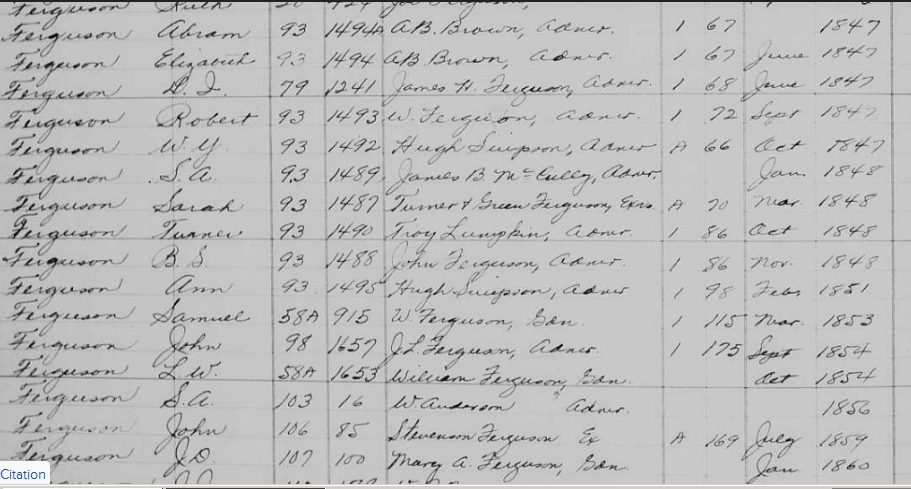 Ferguson Ruth
Ferguson Abram 93 1494A A.B. Brown, Admr. 1 67 1847
Ferguson Elizabeth 93 1494 A.B. Brown, Admr. 1 67 June 1847
Ferguson D. I. 79 1241 James H. Ferguson, Admr. 1 68 June 1847
Ferguson Robert 93 1493 W. Ferguson, Admr. 1 72 Sept 1847
Ferguson W. Y. 93 1492 Hugh Simpson, Admr A 66 Oct 1847
Ferguson S. A. 93 1489 James B. McCully, Admr. Jan. 1848
Ferguson Sarah 93 1487 Turner & Green Ferguson, Exrs A 70 Mar. 1848
Ferguson Turner 93 1490 Troy Lumpkin, Admr. 1 86 Oct 1848
Ferguson B. S. 93 1488 John Ferguson, Admr. 1 86 Nov. 1848
Ferguson Ann 93 1495 Hugh Simpson, Admr 1 98 Feby 1851
Ferguson Samuel 58A 915 W. Ferguson, Gdn. 1 115 Mar. 1853
Ferguson John 98 1657 J.L. Ferguson, Admr. 1 175 Sept 1854
Ferguson L. W. 58A 1653 William Ferguson, Gdn. Oct 1854
Ferguson S. A. 103 16 W. Anderson Admr. 1856
Ferguson John 106 85 Stevenson Ferguson Ex A 169 July 1859
Ferguson J. D. 107 100 Mary A. Ferguson, Gdn. Jan. 1860
Citation